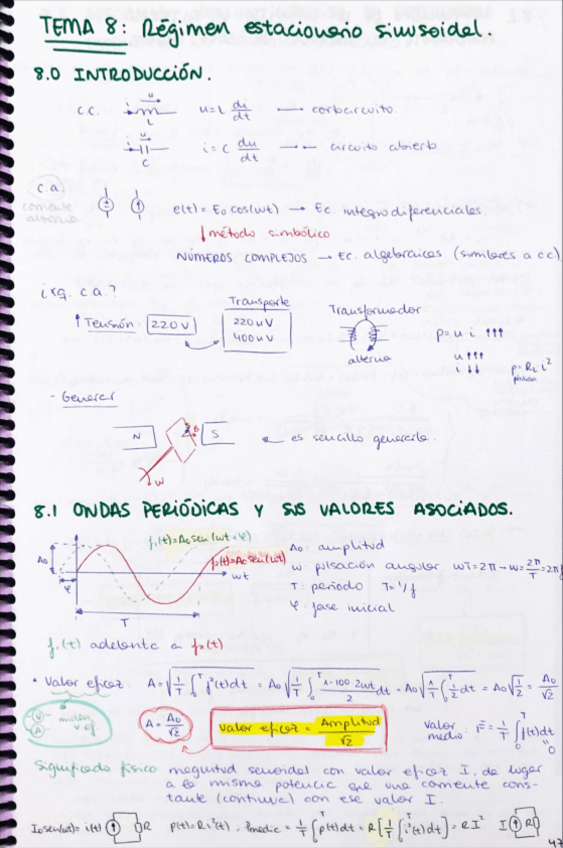 TEMA 8: Régimen estacionario sinusoidal.
8.0 INTRODUCCIÓN.
c.c. i u L u = L di/dt → cortocircuito
i u C i = C du/dt → circuito abierto
c.a
corriente alterna e(t) = E₀ cos(wt) → Ec. integrodiferenciales
↓ método simbólico
NÚMEROS COMPLEJOS → Ec. algebraicas (similares a cc)
Transporte
↑ Tensión: 220V 220kV 400kV
Transformador
alterna
p = u i ↑↑↑
u ↑↑↑
i ↓↓
- Generar
N S B w ← es sencillo generarla.
8.1 ONDAS PERIÓDICAS Y SUS VALORES ASOCIADOS.
f₁(t)=A₀sen(wt+φ)
f₂(t)=A₀sen(wt)
A₀ φ T wt
A₀: amplitud
w: pulsación angular wT=2π → w=2π/T=2πf
T: periodo T=1/f
φ: fase inicial
f₁(t) adelanta a f₂(t)
* Valor eficaz: A = √(1/T ∫₀ᵀ f²(t)dt) = A₀ √(1/T ∫₀ᵀ 1-cos 2wt/2 dt) = A₀ √(1/T ∫₀ᵀ 1/2 dt) = A₀ √1/2 = A₀/√2
V A miden v.ef
A = A₀/√2
Valor eficaz = Amplitud/√2
Valor medio: F̄ = 1/T ∫₀ᵀ f(t)dt = 0
Significado físico magnitud senoidal con valor eficaz I, da lugar
a la misma potencia que una corriente cons-
tante (continua) con ese valor I.
I₀sen(wt)=i(t) R p(t)=Ri²(t), Pmedia = 1/T ∫₀ᵀ p(t)dt = R[1/T ∫₀ᵀ i²(t)dt] = RI² I R
47